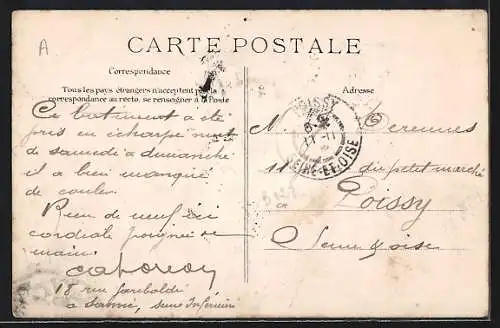 A
CARTE POSTALE
Correspondance
Tous les pays étrangers n'acceptent pas la
correspondance au recto, se renseigner à la Poste
Ce batiment a été
pris en écharpe nuit
de samedi a dimanche
il a bien manqué
de couler
Rien de neuf ici
cordiale poignée de
main
18 rue Garibaldi
a
Adresse
POISSY
SEINE-ET-OISE
M.
11 du petit marché
a Poissy
Seine & oise